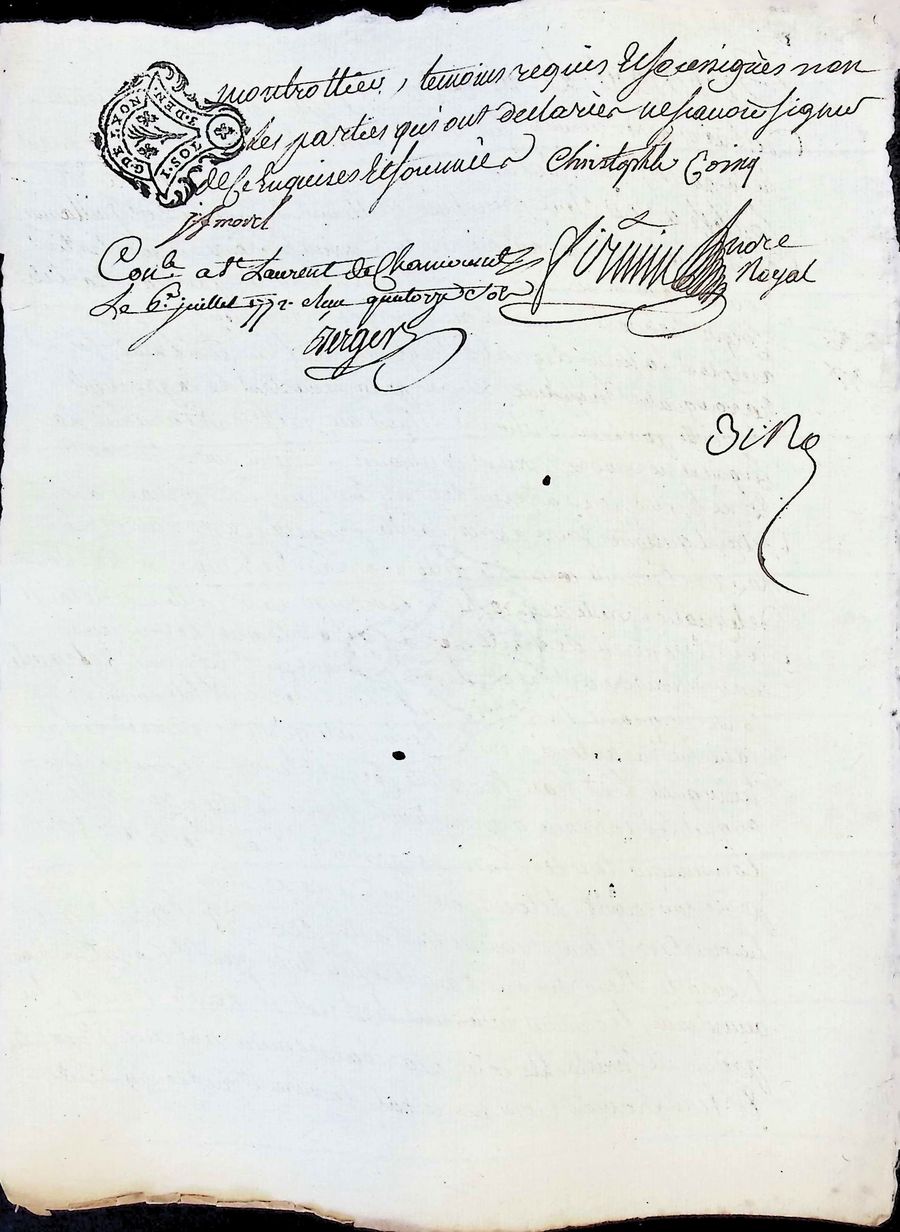 G. DE LYON
I. SOL
3. DEN.
montrottier, temoins requis et soussignès non
les parties qui ont declarèes ne scavoir signer
de Ce Enquises et sommèes Christophle Coing
j f morel
Conlé a St Laurent de Chamousset
Le 6e juillet 1772 Reçu quatorze sols
firmin
Andre
Noyal
Berger